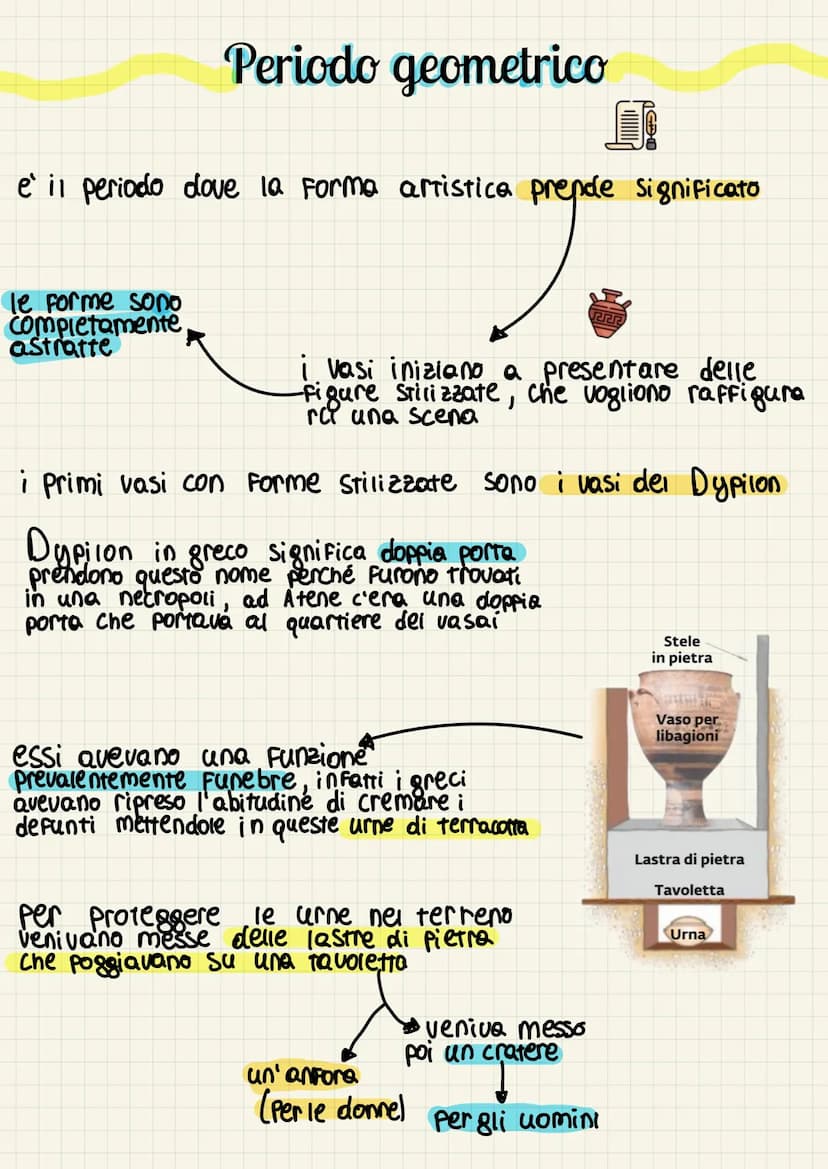 Periodo geometrico
e' il periodo dove la forma artistica prende significato
le forme sono
completamente
astratte
i vasi iniziano a presentare delle
figure stilizzate, che vogliono raffigura
re una scena
i primi vasi con forme stilizzate sono i vasi del Dypilon
Dypilon in greco significa doppia porta
prendono questo nome perché furono trovati
in una necropoli, ad Atene c'era una doppia
porta che portava al quartiere dei vasai
Stele
in pietra
Vaso per
libagioni
essi avevano una funzione
prevalentemente funebre, infatti i greci
avevano ripreso l'abitudine di cremare i
defunti mettendole in queste urne di terracotta
Lastra di pietra
Tavoletta
Urna
per proteggere le urne nel terreno
venivano messe delle lastre di pietra
che poggiavano su una tavoletta
veniva messo
poi un cratere
un'anfora
(per le donne)
per gli uomini